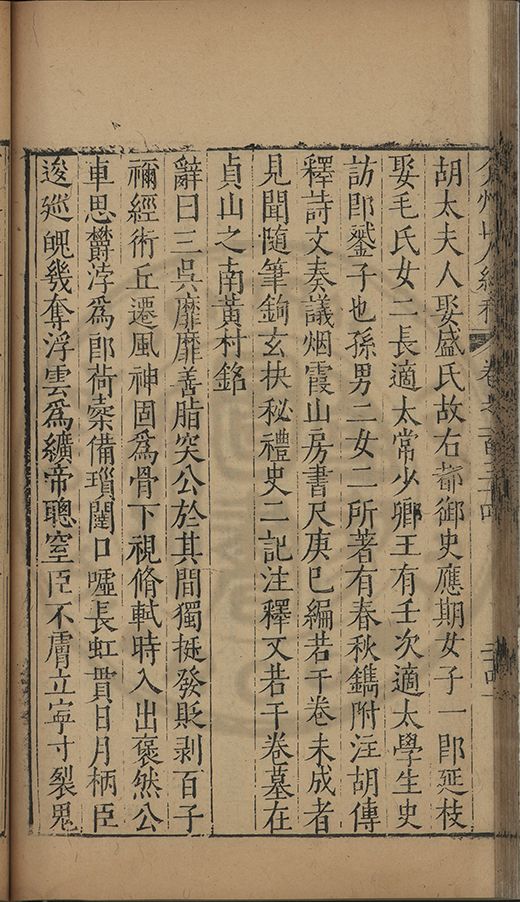 弇州山人續稿 卷之一百三四
胡太夫人娶盛氏故右都御史應期女子一卽延枝
娶毛氏女二長適太常少卿王有壬次適太學生史
訪卽鋻子也孫男二女二所著有春秋鐫附注胡傳
釋詩文奏議烟霞山房書尺庚巳編若干卷未成者
見聞隨筆鉤玄抉秘禮史二記注釋文若干卷墓在
貞山之南黃村銘
辭曰三吳靡靡善脂突公於其間獨挺發貶剥百子
禰經術丘遷風神固爲骨下視脩軾時入出褎然公
車思欝浡爲郎荷槖備瑣闥口噓長虹貫日月柄臣
逡廵魄幾奪浮雲爲纊帝聰窒臣不膚立寧寸裂鬼